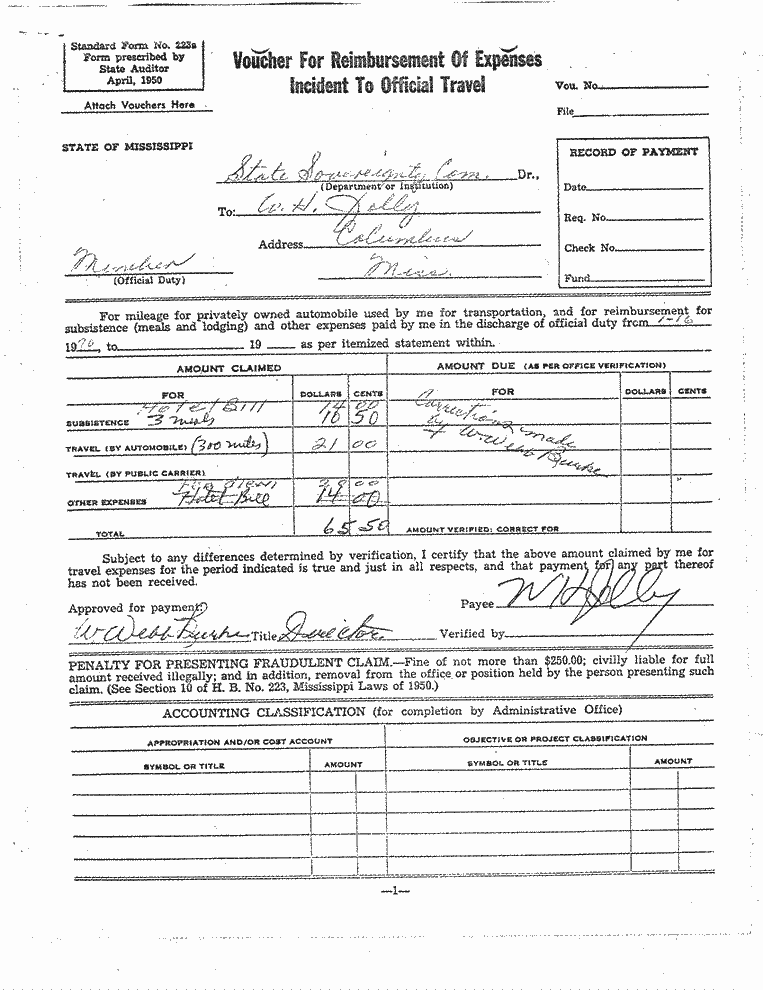 Standard Form No. 223a
Form prescribed by
State Auditor
April, 1950
Attach Vouchers Here
Voucher For Reimbursement Of Expenses
Incident To Official Travel
Vou. No.
File
STATE OF MISSISSIPPI
RECORD OF PAYMENT
Date
Req. No.
Check No.
Fund
State Sovereignty Com. Dr.,
(Department or Institution)
To: W. H. Jolly
Address Columbus
Miss.
Member
(Official Duty)
For mileage for privately owned automobile used by me for transportation, and for reimbursement for
subsistence (meals and lodging) and other expenses paid by me in the discharge of official duty from 1-16
1970, to 19 as per itemized statement within.
AMOUNT CLAIMED
AMOUNT DUE (AS PER OFFICE VERIFICATION)
FOR DOLLARS CENTS FOR DOLLARS CENTS
Hotel Bill 14 00
SUBSISTENCE 3 meals 50
Corrections made
by W. Webb Burke
TRAVEL (BY AUTOMOBILE) (300 miles) 21 00
TRAVEL (BY PUBLIC CARRIER)
Per Diem 00
OTHER EXPENSES Hotel Bill 14 00
TOTAL 65 50 AMOUNT VERIFIED: CORRECT FOR
Subject to any differences determined by verification, I certify that the above amount claimed by me for
travel expenses for the period indicated is true and just in all respects, and that payment for any part thereof
has not been received.
Payee W H Jolly
Approved for payment:
W Webb Burke Title Director Verified by
PENALTY FOR PRESENTING FRAUDULENT CLAIM.—Fine of not more than $250.00; civilly liable for full
amount received illegally; and in addition, removal from the office or position held by the person presenting such
claim. (See Section 10 of H. B. No. 223, Mississippi Laws of 1950.)
ACCOUNTING CLASSIFICATION (for completion by Administrative Office)
APPROPRIATION AND/OR COST ACCOUNT OBJECTIVE OR PROJECT CLASSIFICATION
SYMBOL OR TITLE AMOUNT SYMBOL OR TITLE AMOUNT
—1—